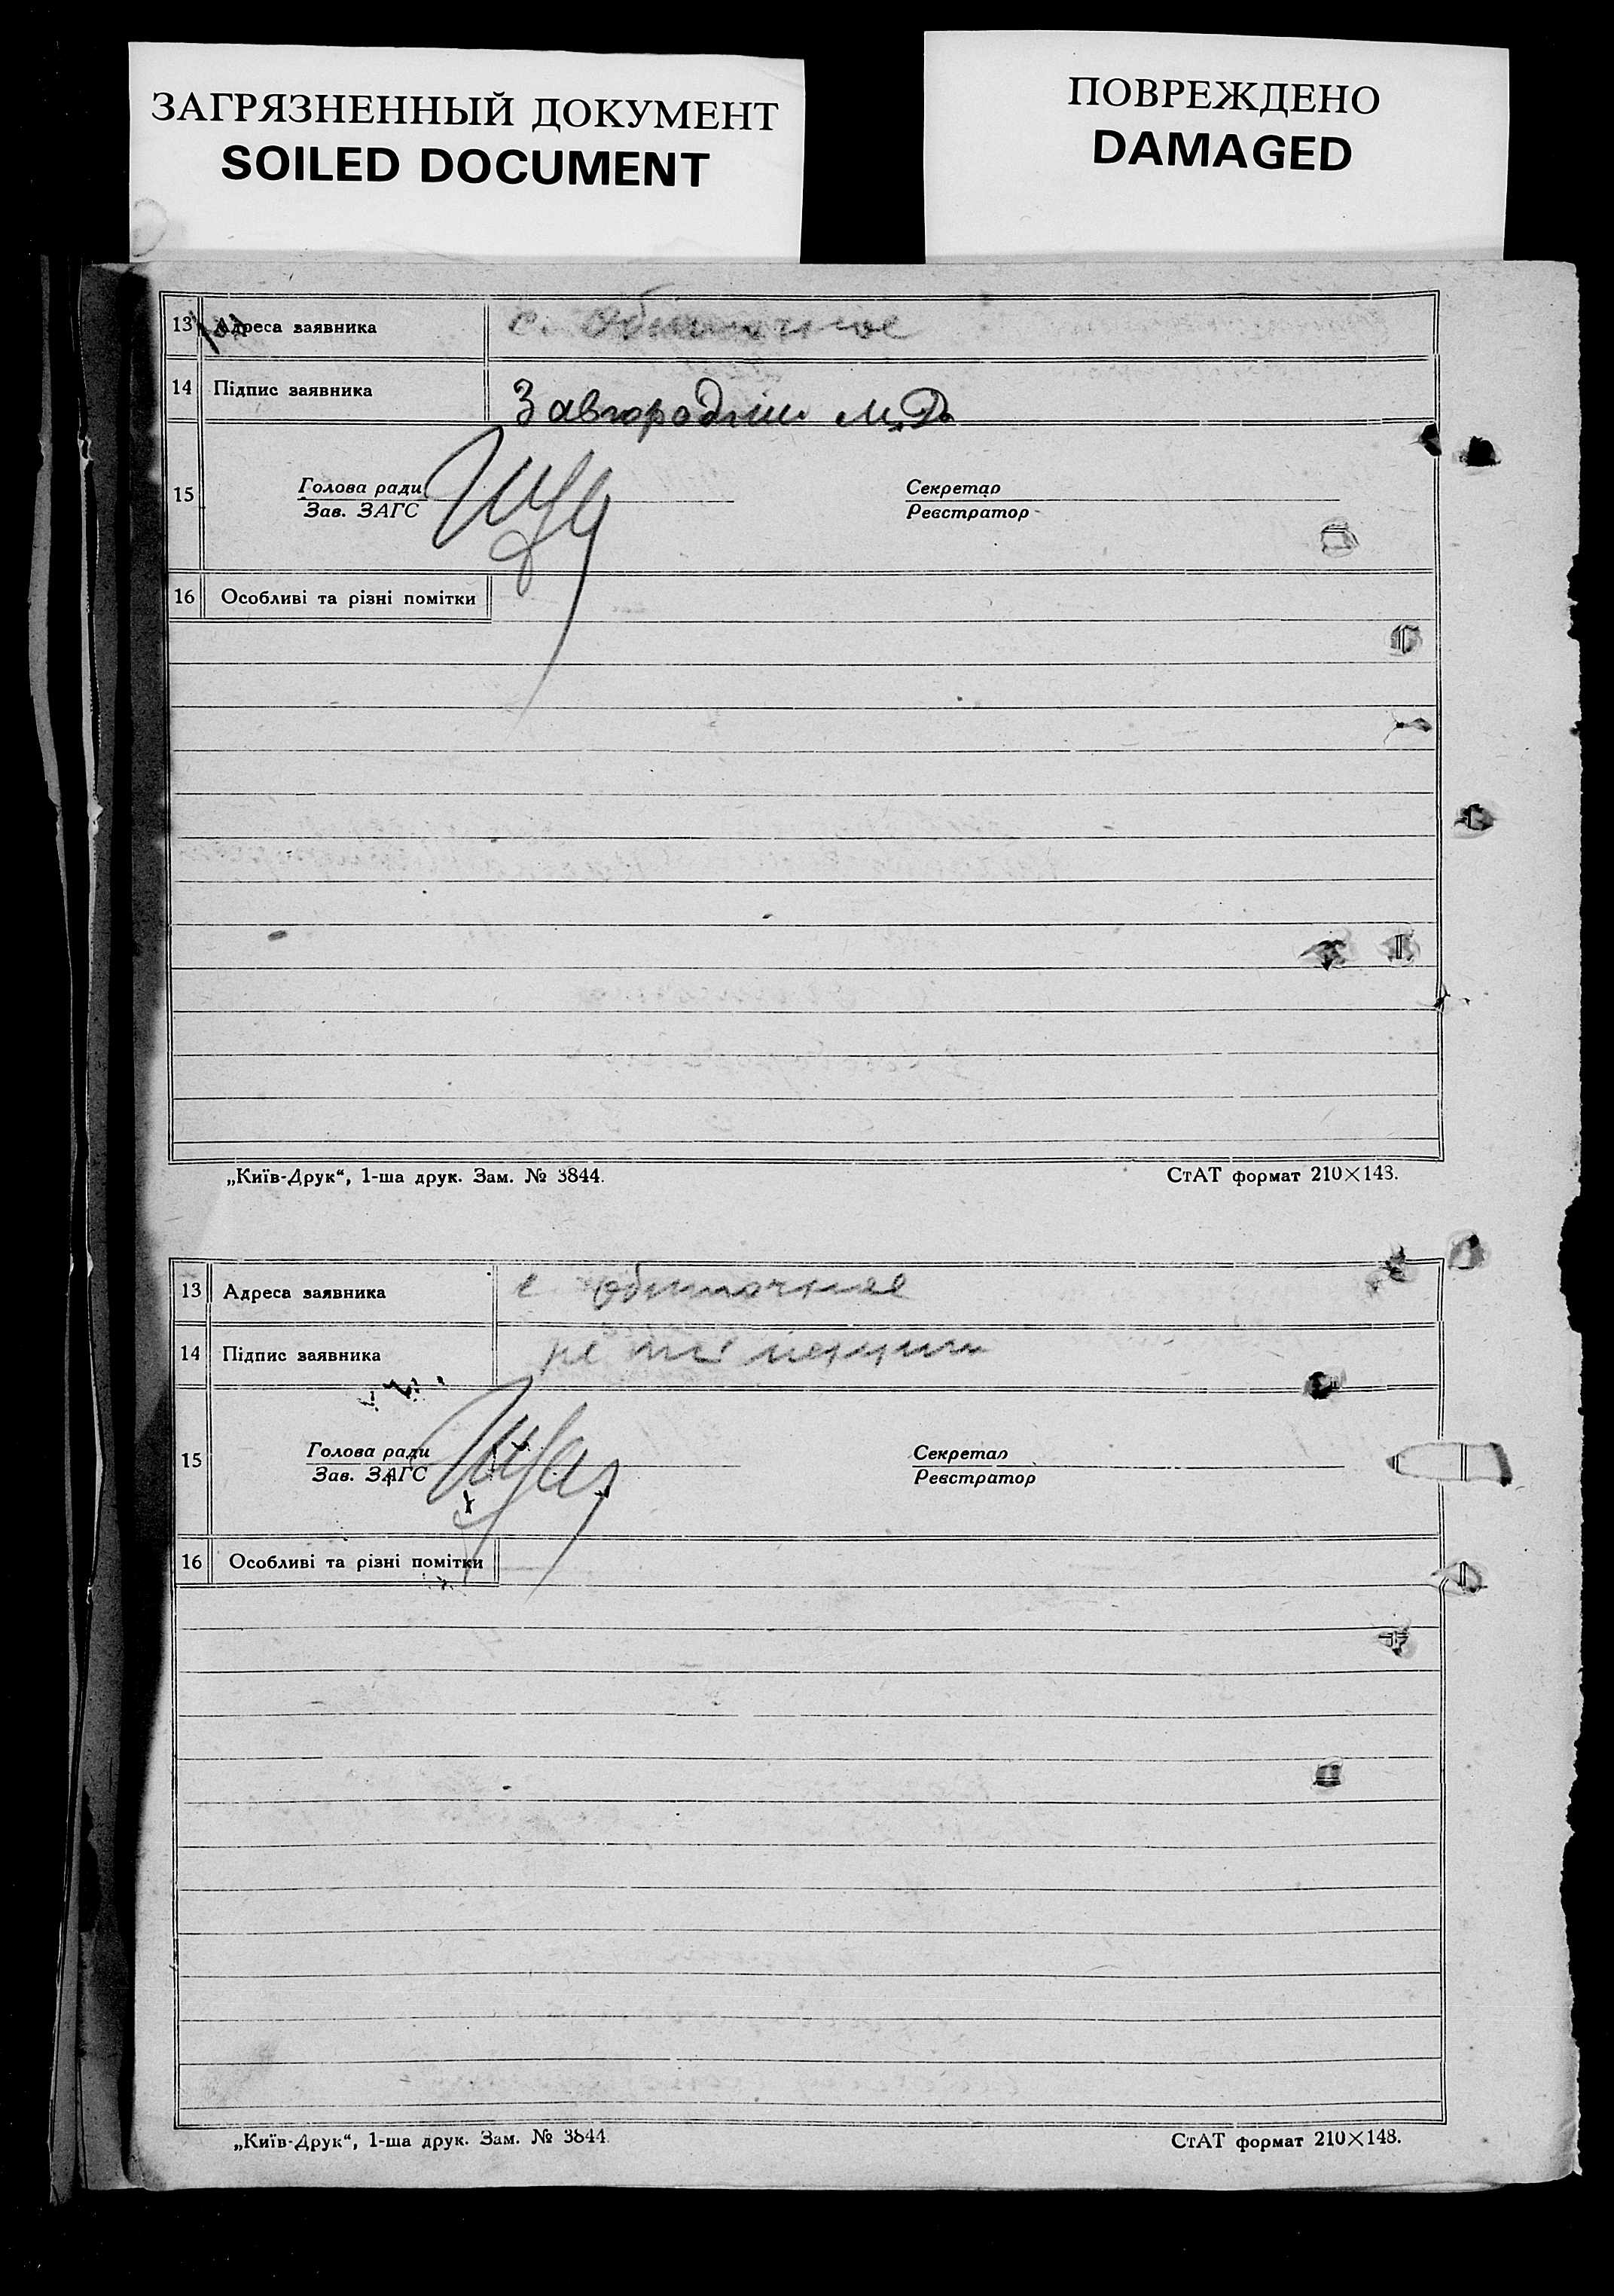 ЗАГРЯЗНЕННЫЙ ДОКУМЕНТ
SOILED DOCUMENT
ПОВРЕЖДЕНО
DAMAGED
13 Адреса заявника с. Обиточное
14 Підпис заявника Завгородній М.Д.
15 Голова ради Секретар
Зав. ЗАГС Реєстратор
16 Особливі та різні помітки
„Київ-Друк“, 1-ша друк. Зам. № 3844. СтАТ формат 210×143.
13 Адреса заявника с Обиточное
14 Підпис заявника
15 Голова ради Секретар
Зав. ЗАГС Реєстратор
16 Особливі та різні помітки
„Київ-Друк“, 1-ша друк. Зам. № 3844 СтАТ формат 210×148.